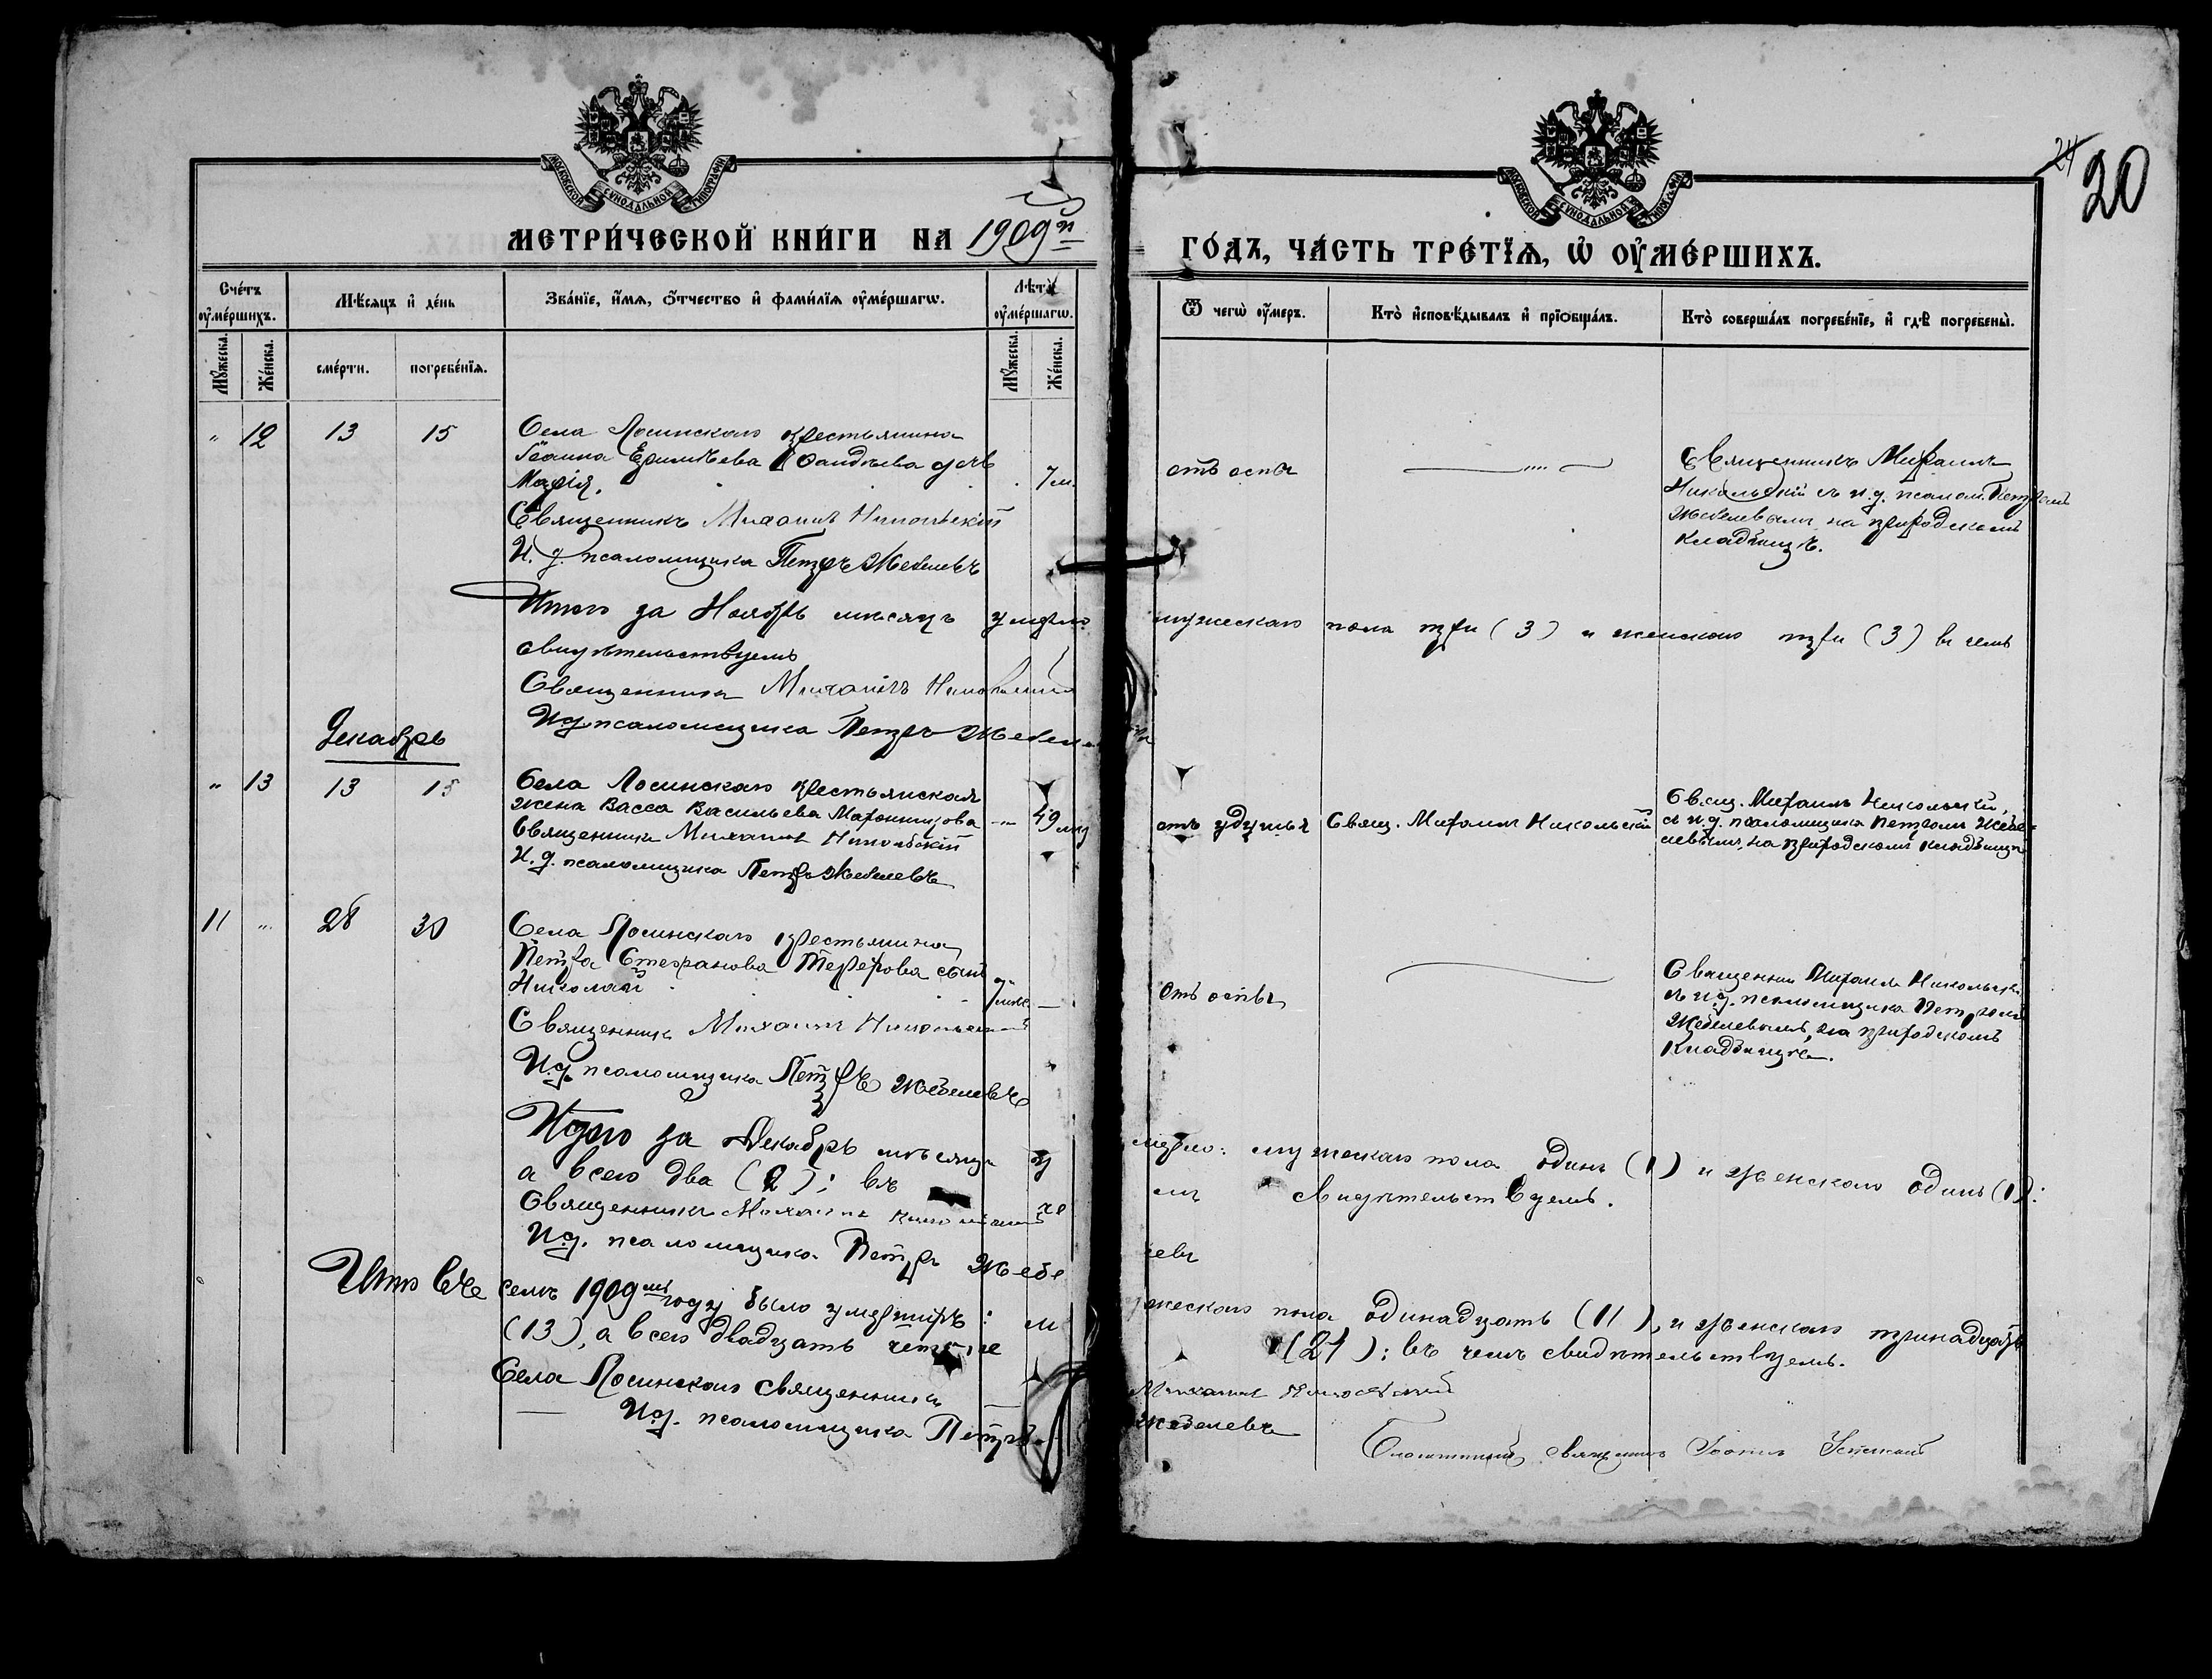 МОСКОВСКОЙ СѴНОДАЛЬНОЙ ТИПОГРАФІИ
МОСКОВСКОЙ СѴНОДАЛЬНОЙ ТИПОГРАФІИ
24
20
МЕТРИ́ЧЕСКОЙ КНИ́ГИ НА 1909й
ГО́ДЪ, ЧА́СТЬ ТРЕ́ТЇѦ, Ѡ҆ ОУ҆МЕ́РШИХЪ.
Сче́тъ оу҆ме́ршихъ.
Мѣ́сяцъ и҆ де́нь
Зва́нїе, и҆́мѧ, ѻ҆́тчество и҆ фами́лїѧ оу҆ме́ршагѡ.
Лѣ́та оу҆ме́ршагѡ.
Ѿ чегѡ̀ оу҆́меръ.
Кто̀ и҆сповѣ́дывалъ и҆ прїѡбща́лъ.
Кто̀ соверша́лъ погребе́нїе, и҆ гдѣ̀ погребены̀.
Мꙋ́жеска.
Же́нска.
сме́рти.
погребе́нїѧ.
Мꙋ́жеска.
Же́нска.
" 12 13 15
Села Лосинскаго крестьянина
Іоанна дочь
Марія. 7 м.
Священникъ Михаилъ Никольскій
И. д. псаломщика Петръ Жебелевъ
отъ оспы
Священникъ Михаилъ
Никольскій съ и. д. псалом. Петромъ
Жебелевымъ на приходскомъ
кладбищѣ.
Итого за Ноябрь мѣсяцъ умерло мужескаго пола три (3) и женскаго три (3) въ чемъ
свидѣтельствуемъ
Священникъ Михаилъ Никольскій
И. д. псаломщика Петръ Жебелевъ
Декабрь
" 13 13 15
Села Лосинскаго крестьянская
жена Васса Васильева
49 лѣтъ
Священникъ Михаилъ Никольскій
И. д. псаломщика Петръ Жебелевъ
отъ удушья
Свящ. Михаилъ Никольскій
Свящ. Михаилъ Никольскій,
съ и. д. псаломщика Петромъ Жебе-
левымъ, на приходскомъ кладбищѣ
11 " 28 30
Села Лосинскаго крестьянина
Петра Стефанова сынъ
Николай 7 мѣс. —
Священникъ Михаилъ Никольскій
И. д. псаломщика Петръ Жебелевъ
отъ оспы
Священникъ Михаилъ Никольскій
съ и. д. псаломщика Петромъ
Жебелевымъ, на приходскомъ
кладбищѣ.
Итого за Декабрь мѣсяцъ умерло: мужескаго пола одинъ (1) и женскаго одинъ (1):
а всего два (2); въ чемъ свидѣтельствуемъ.
Священникъ Михаилъ Никольскій
И. д. псаломщика Петръ Жебелевъ
Итого въ семъ 1909мъ году было умершихъ: мужескаго пола одинадцать (11), и женскаго тринадцать
(13), а всего двадцать четыре (24); въ чемъ свидѣтельствуемъ.
Села Лосинскаго священникъ Михаилъ Никольскій
— И. д. псаломщика Петръ Жебелевъ
Благочинный, священникъ Іоаннъ